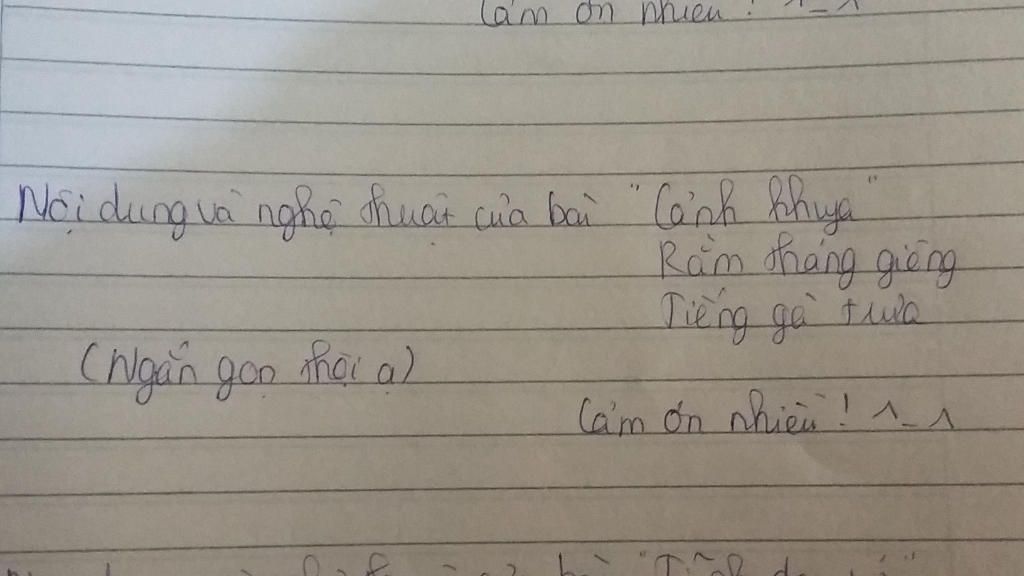 Cảm ơn nhiều! ^_^
Nội dung và nghệ thuật của bài "Cảnh khuya"
Rằm tháng giêng
Tiếng gà trưa
(Ngắn gọn thôi ạ)
Cảm ơn nhiều! ^_^